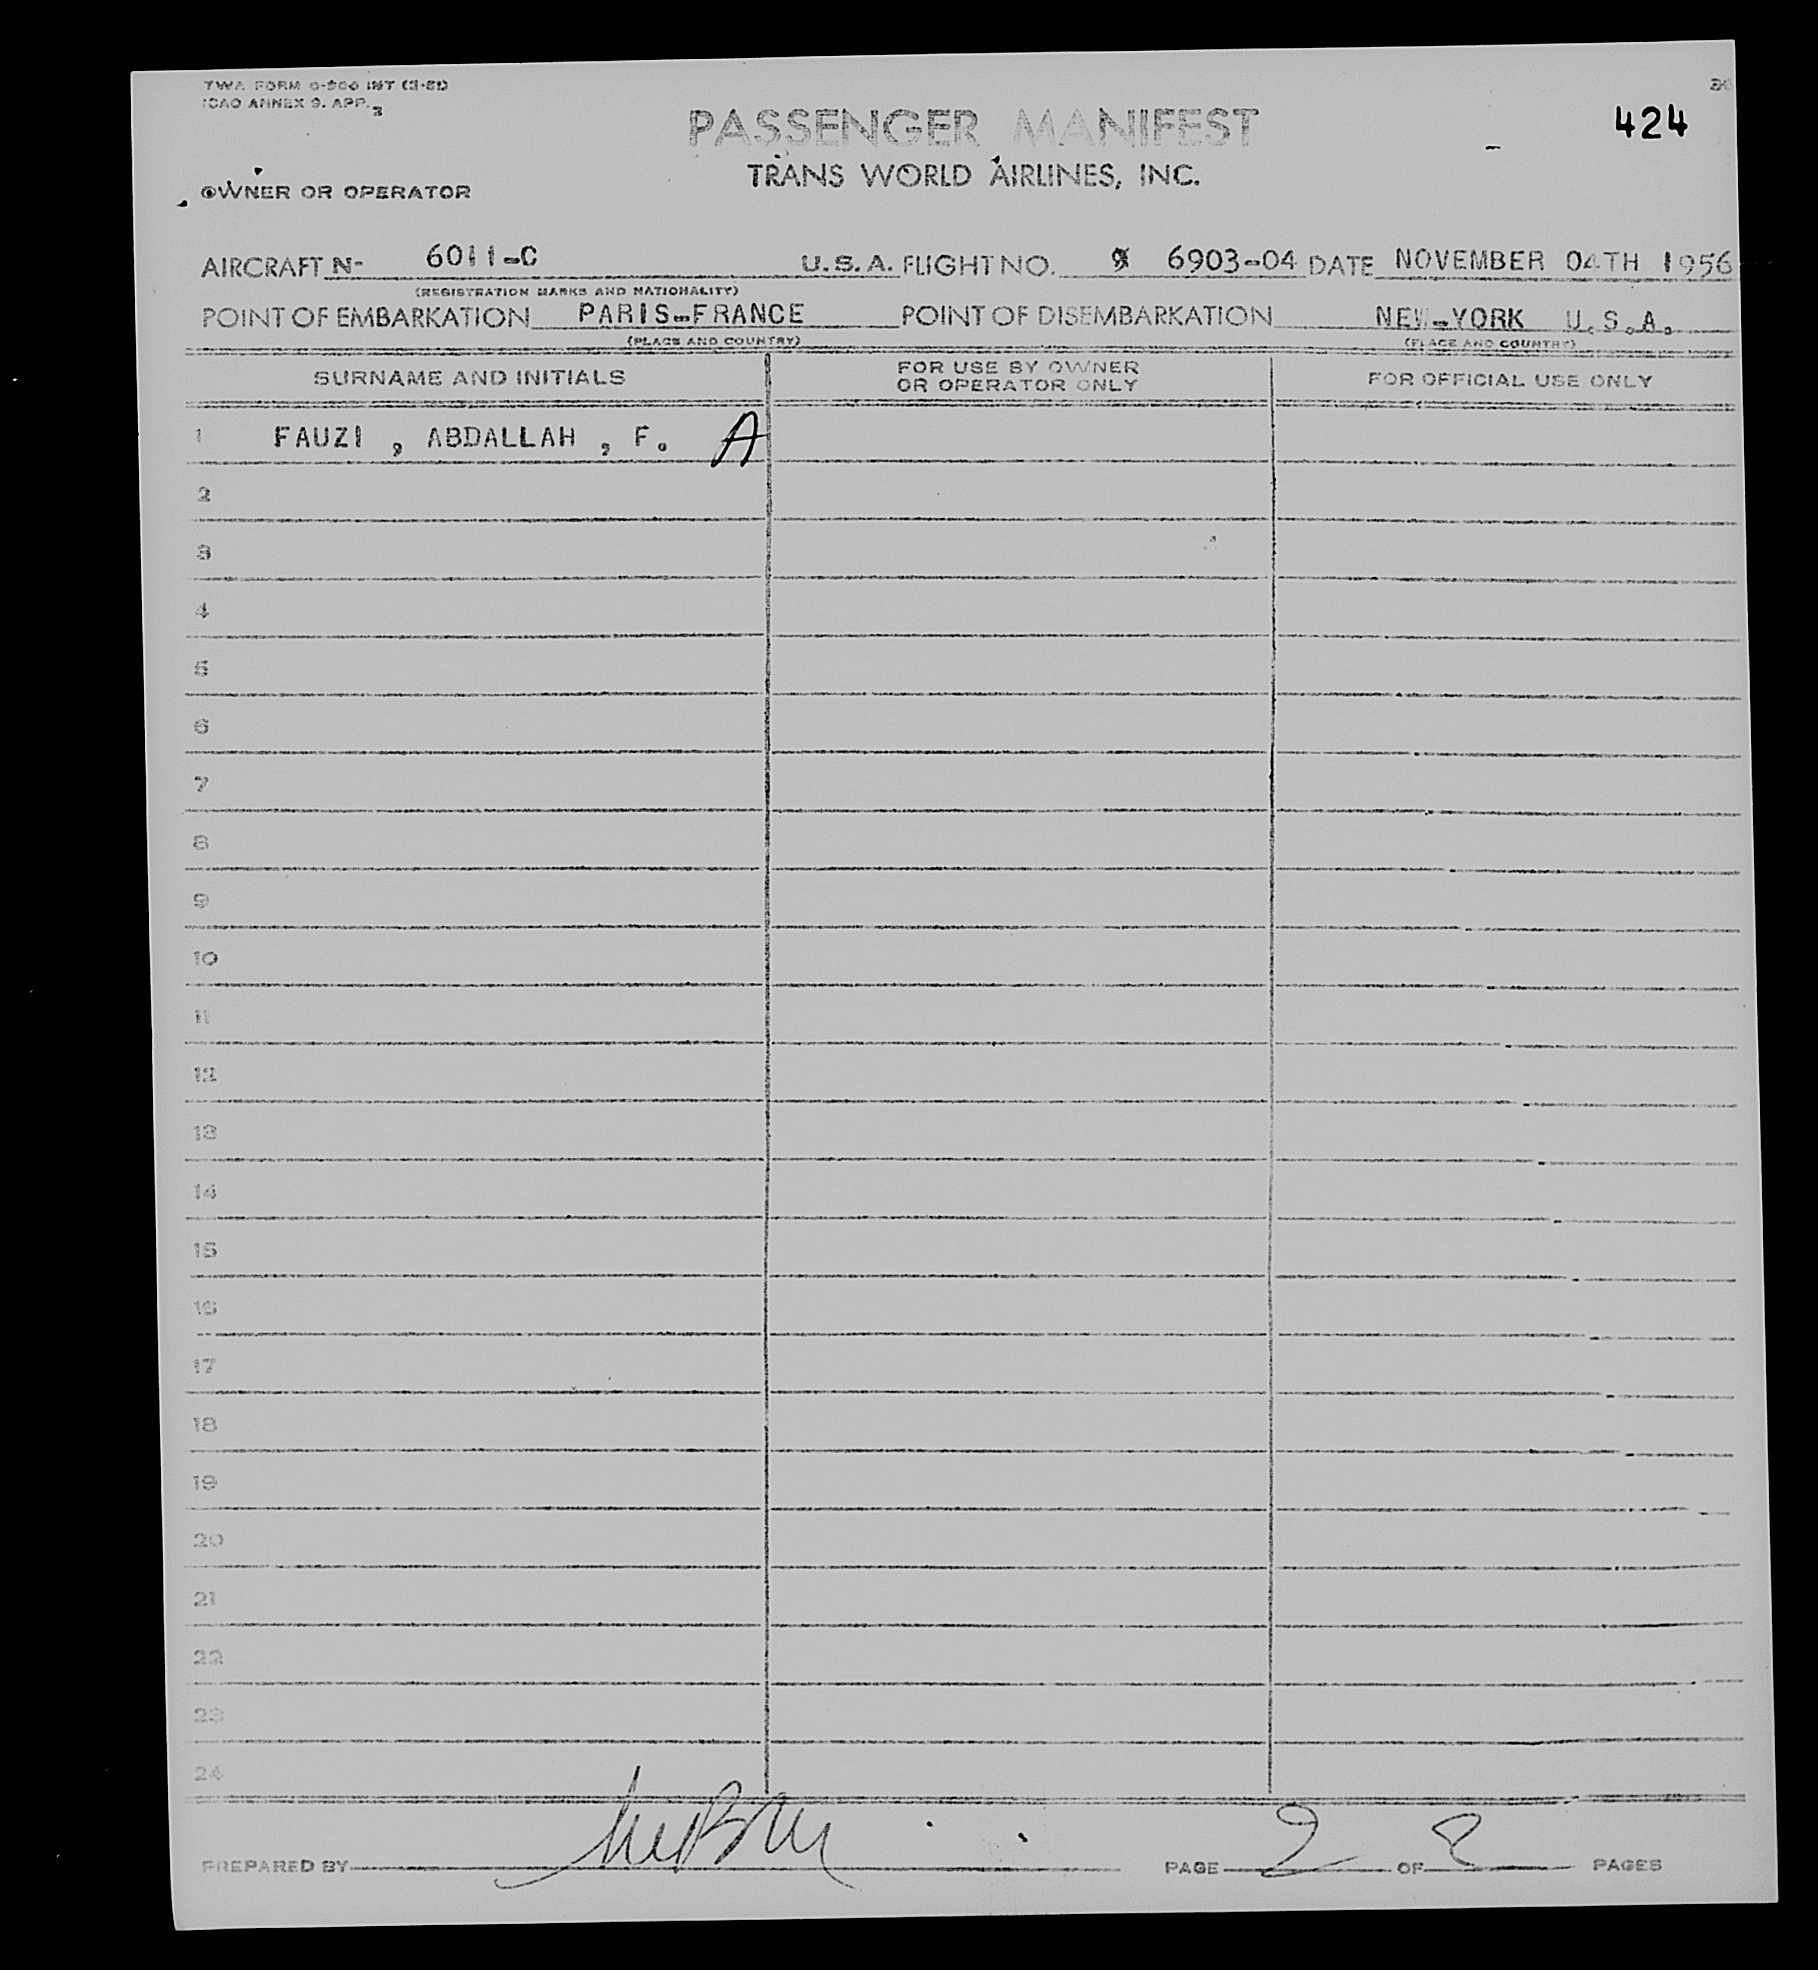 TWA FORM O-200 INT (3-51)
ICAO ANNEX 9. APP. 3
424
PASSENGER MANIFEST
TRANS WORLD AIRLINES, INC.
OWNER OR OPERATOR
AIRCRAFT N- 6011-C U.S.A. FLIGHT NO. 6903-04 DATE NOVEMBER 04TH 1956
(REGISTRATION MARKS AND NATIONALITY)
POINT OF EMBARKATION PARIS-FRANCE POINT OF DISEMBARKATION NEW-YORK U.S.A.
(PLACE AND COUNTRY) (PLACE AND COUNTRY)
SURNAME AND INITIALS FOR USE BY OWNER OR OPERATOR ONLY FOR OFFICIAL USE ONLY
1 FAUZI , ABDALLAH , F. A
2
3
4
5
6
7
8
9
10
11
12
13
14
15
16
17
18
19
20
21
22
23
24
PREPARED BY PAGE 2 OF 2 PAGES